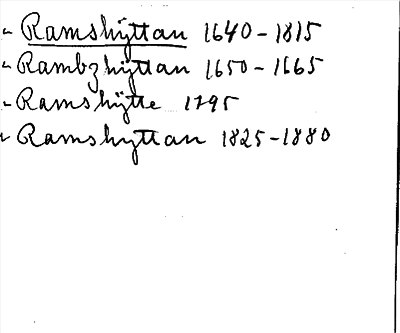 " Ramshÿttan 1640-1815
" Rambzhÿttan 1650-1665
" Ramshÿtte 1795
" Ramshyttan 1825-1880